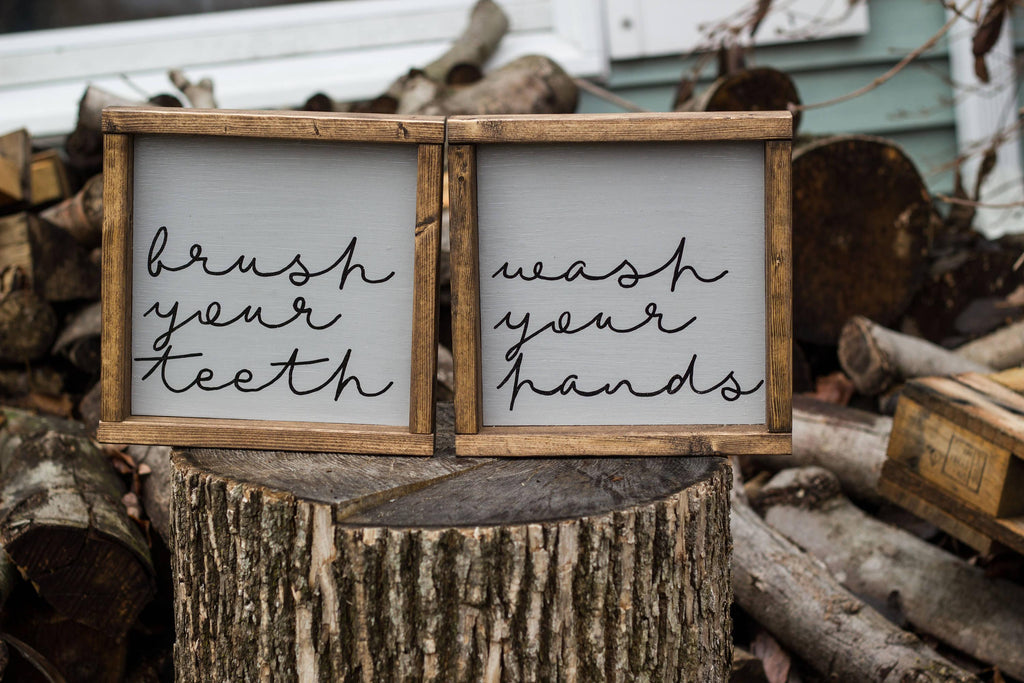 brush
your
teeth
wash
your
hands